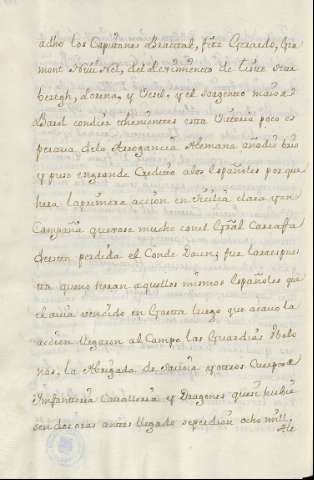 adho los Capitanes Bractal, fitz Gerardo, Gra
mont Niu Nel, del Reximiento de
beregh, Lorena, y Vecel, y el sargento maior
Basel condies thenientes esta Victoria poco es
peraua dela Arrogancia Alemana añadió brio
y puso engrande Credito alos Españoles por que
hera la primera accion en Sicilia clara y en
Campaña quexose mucho conel Gral Carrafa
de esta perdida el Conde Daun, fue la respues
ta que no heran aquellos mismos Españoles que
el auia vencido en Gaetta luego que acauo la
accion llegaron al Campo las Guardias Walo
nas, la Abrigada de Sauoia y otros Cuerpos de
Ynfanteria Caualleria y Dragones que si hubie
sen dos oras antes llegado se perdieron ocho mill
Ale